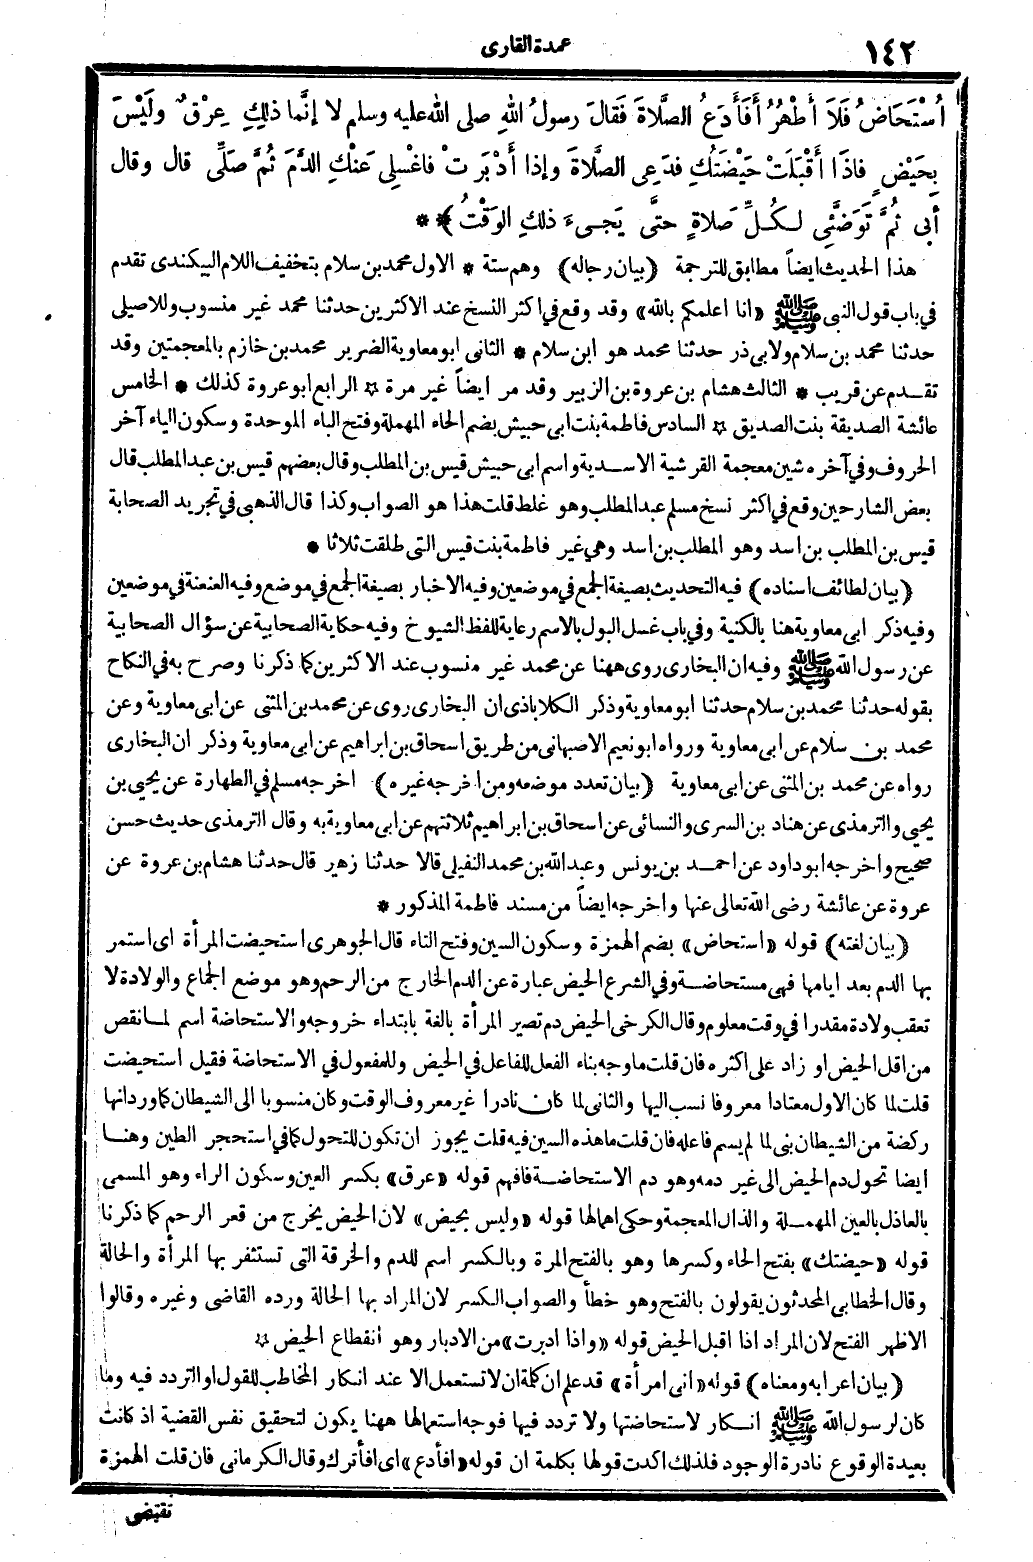 ١٤٢
عمدة القارى
أُسْتَحَاضُ فَلَا أَطْهُرُ أَفَأَدَعُ الصَّلَاةَ فَقَالَ رسولُ اللهِ صلى الله عليه وسلم لا إِنَّما ذلِكِ عِرْقٌ ولَيْسَ
بِحَيْضٍ فاذَا أَقْبَلَتْ حَيْضَتُكِ فدَعِى الصَّلَاةَ وإذا أَدْبَرَتْ فاغْسِلِى عَنْكِ الدَّمَ ثُمَّ صَلِّى قال وقال
أبى ثُمَّ تَوَضَّئِى لِكُلِّ صَلاةٍ حتَّى يَجِىءَ ذلِكِ الوَقْتُ ﴾ * *
هذا الحديث ايضاً مطابق للترجمة (بيان رجاله) وهم ستة * الاول محمد بن سلام بتخفيف اللام البيكندى تقدم
فى باب قول النبى ﷺ «انا اعلمكم بالله» وقد وقع فى اكثر النسخ عند الاكثرين حدثنا محمد غير منسوب وللاصيلى
حدثنا محمد بن سلام ولابى ذر حدثنا محمد هو ابن سلام * الثانى ابو معاوية الضرير محمد بن خازم بالمعجمتين وقد
تقدم عن قريب * الثالث هشام بن عروة بن الزبير وقد مر ايضاً غير مرة * الرابع ابو عروة كذلك * الخامس
عائشة الصديقة بنت الصديق * السادس فاطمة بنت ابى حبيش بضم الحاء المهملة وفتح الباء الموحدة وسكون الياء آخر
الحروف وفى آخره شين معجمة القرشية الاسدية واسم ابى حبيش قيس بن المطلب وقال بعضهم قيس بن عبد المطلب قال
بعض الشارحين وقع فى اكثر نسخ مسلم عبد المطلب وهو غلط قلت هذا هو الصواب وكذا قال الذهبى فى تجريد الصحابة
قيس بن المطلب بن اسد وهو المطلب بن اسد وهى غير فاطمة بنت قيس التى طلقت ثلاثا *
(بيان لطائف اسناده) فيه التحديث بصيغة الجمع فى موضعين وفيه الاخبار بصيغة الجمع فى موضع وفيه العنعنة فى موضعين
وفيه ذكر ابى معاوية هنا بالكنية وفى باب غسل البول بالاسم رعاية للفظ الشيوخ وفيه حكاية الصحابية عن سؤال الصحابية
عن رسول الله ﷺ وفيه ان البخارى روى ههنا عن محمد غير منسوب عند الاكثرين كما ذكرنا وصرح به فى النكاح
بقوله حدثنا محمد بن سلام حدثنا ابو معاوية وذكر الكلاباذى ان البخارى روى عن محمد بن المثنى عن ابى معاوية وعن
محمد بن سلام عن ابى معاوية ورواه ابو نعيم الاصبهانى من طريق اسحاق بن ابراهيم عن ابى معاوية وذكر ان البخارى
رواه عن محمد بن المثنى عن ابى معاوية (بيان تعدد موضعه ومن اخرجه غيره) اخرجه مسلم فى الطهارة عن يحيى بن
يحيى والترمذى عن هناد بن السرى والنسائى عن اسحاق بن ابراهيم ثلاثتهم عن ابى معاوية به وقال الترمذى حديث حسن
صحيح واخرجه ابو داود عن احمد بن يونس وعبد الله بن محمد النفيلى قالا حدثنا زهير قال حدثنا هشام بن عروة عن
عروة عن عائشة رضى الله تعالى عنها واخرجه ايضاً من مسند فاطمة المذكور *
(بيان لغته) قوله «استحاض» بضم الهمزة وسكون السين وفتح التاء قال الجوهرى استحيضت المرأة اى استمر
بها الدم بعد ايامها فهى مستحاضة وفى الشرع الحيض عبارة عن الدم الخارج من الرحم وهو موضع الجماع والولادة لا
تعقب ولادة مقدرا فى وقت معلوم وقال الكرخى الحيض دم تصير المرأة بالغة بابتداء خروجه والاستحاضة اسم لما نقص
من اقل الحيض او زاد على اكثره فان قلت ما وجه بناء الفعل للفاعل فى الحيض وللمفعول فى الاستحاضة فقيل استحيضت
قلت لما كان الاول معتادا معروفا نسب اليها والثانى لما كان نادرا غير معروف الوقت وكان منسوبا الى الشيطان كما ورد انها
ركضة من الشيطان بنى لما لم يسم فاعله فان قلت ما هذه السين فيه قلت يجوز ان تكون للتحول كما فى استحجر الطين وهنا
ايضا تحول دم الحيض الى غير دمه وهو دم الاستحاضة فافهم قوله «عرق» بكسر العين وسكون الراء وهو المسمى
بالعاذل بالعين المهملة والذال المعجمة وحكى اهمالها قوله «وليس بحيض» لان الحيض يخرج من قعر الرحم كما ذكرنا
قوله «حيضتك» بفتح الحاء وكسرها وهو بالفتح المرة وبالكسر اسم للدم والخرقة التى تستثفر بها المرأة والحالة
وقال الخطابى المحدثون يقولون بالفتح وهو خطأ والصواب الكسر لان المراد بها الحالة ورده القاضى وغيره وقالوا
الاظهر الفتح لان المراد اذا اقبل الحيض قوله «واذا ادبرت» من الادبار وهو انقطاع الحيض *
(بيان اعرابه ومعناه) قوله «انى امرأة» قد علم ان كلمة ان لا تستعمل الا عند انكار المخاطب للقول او التردد فيه وما
كان لرسول الله ﷺ انكار لاستحاضتها ولا تردد فيها فوجه استعمالها ههنا يكون لتحقيق نفس القضية اذ كانت
بعيدة الوقوع نادرة الوجود فلذلك اكدت قولها بكلمة ان قوله «افأدع» اى افأترك وقال الكرمانى فان قلت الهمزة
تقتضى